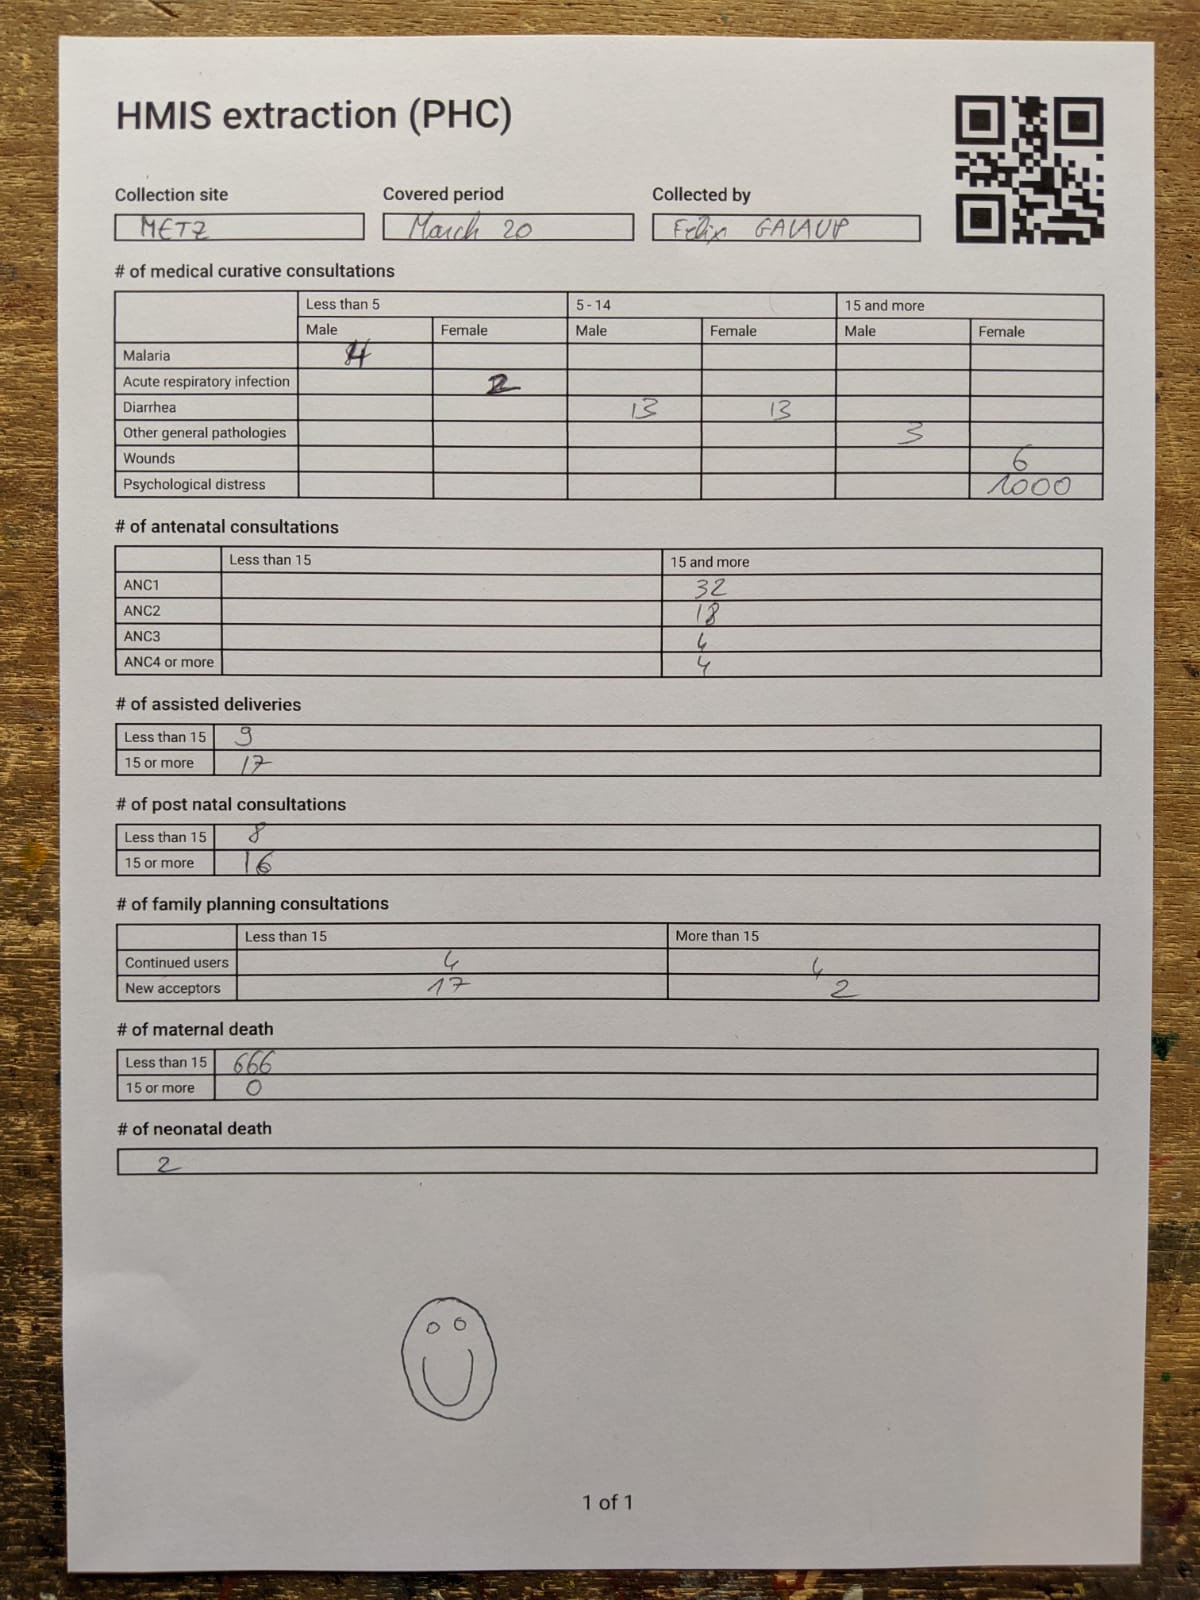 HMIS extraction (PHC)
Collection site Covered period Collected by
METZ March 20 Felix GALAUP
# of medical curative consultations
Less than 5 5 - 14 15 and more
Male Female Male Female Male Female
Malaria 4
Acute respiratory infection 2
Diarrhea 13 13
Other general pathologies 3
Wounds 6
Psychological distress 1000
# of antenatal consultations
Less than 15 15 and more
ANC1 32
ANC2 18
ANC3 4
ANC4 or more 4
# of assisted deliveries
Less than 15 9
15 or more 17
# of post natal consultations
Less than 15 8
15 or more 16
# of family planning consultations
Less than 15 More than 15
Continued users 4 4
New acceptors 17 2
# of maternal death
Less than 15 666
15 or more 0
# of neonatal death
2
1 of 1